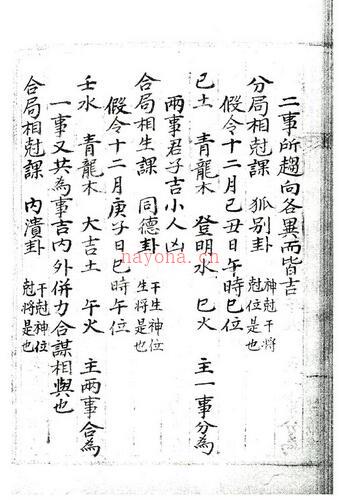 二事所趨向各異而皆吉
分局相尅課 狐别卦 神尅干將尅位是也
假令十二月己丑日午時巳位
己土 青龍木 登明水 巳火 主一事分為
两事君子吉小人凶
合局相生課 同德卦 干生神位生將是也
假令十二月庚子日巳時午位
壬水 青龍木 大吉土 午火 主两事合為
一事又共為事吉内外併力合謀相與也
合局相尅課 内潰卦 干尅神位尅將是也
nayona.cn